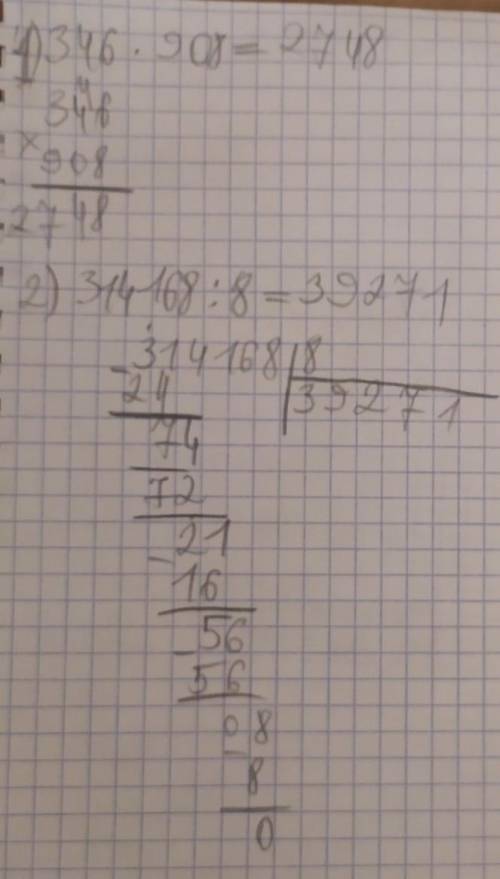 1) 346 · 908 = 2748
346
× 908
2748
2) 314168 : 8 = 39271
- 314168 | 8
24 | 39271
74
- 72
21
- 16
56
- 56
08
- 8
0